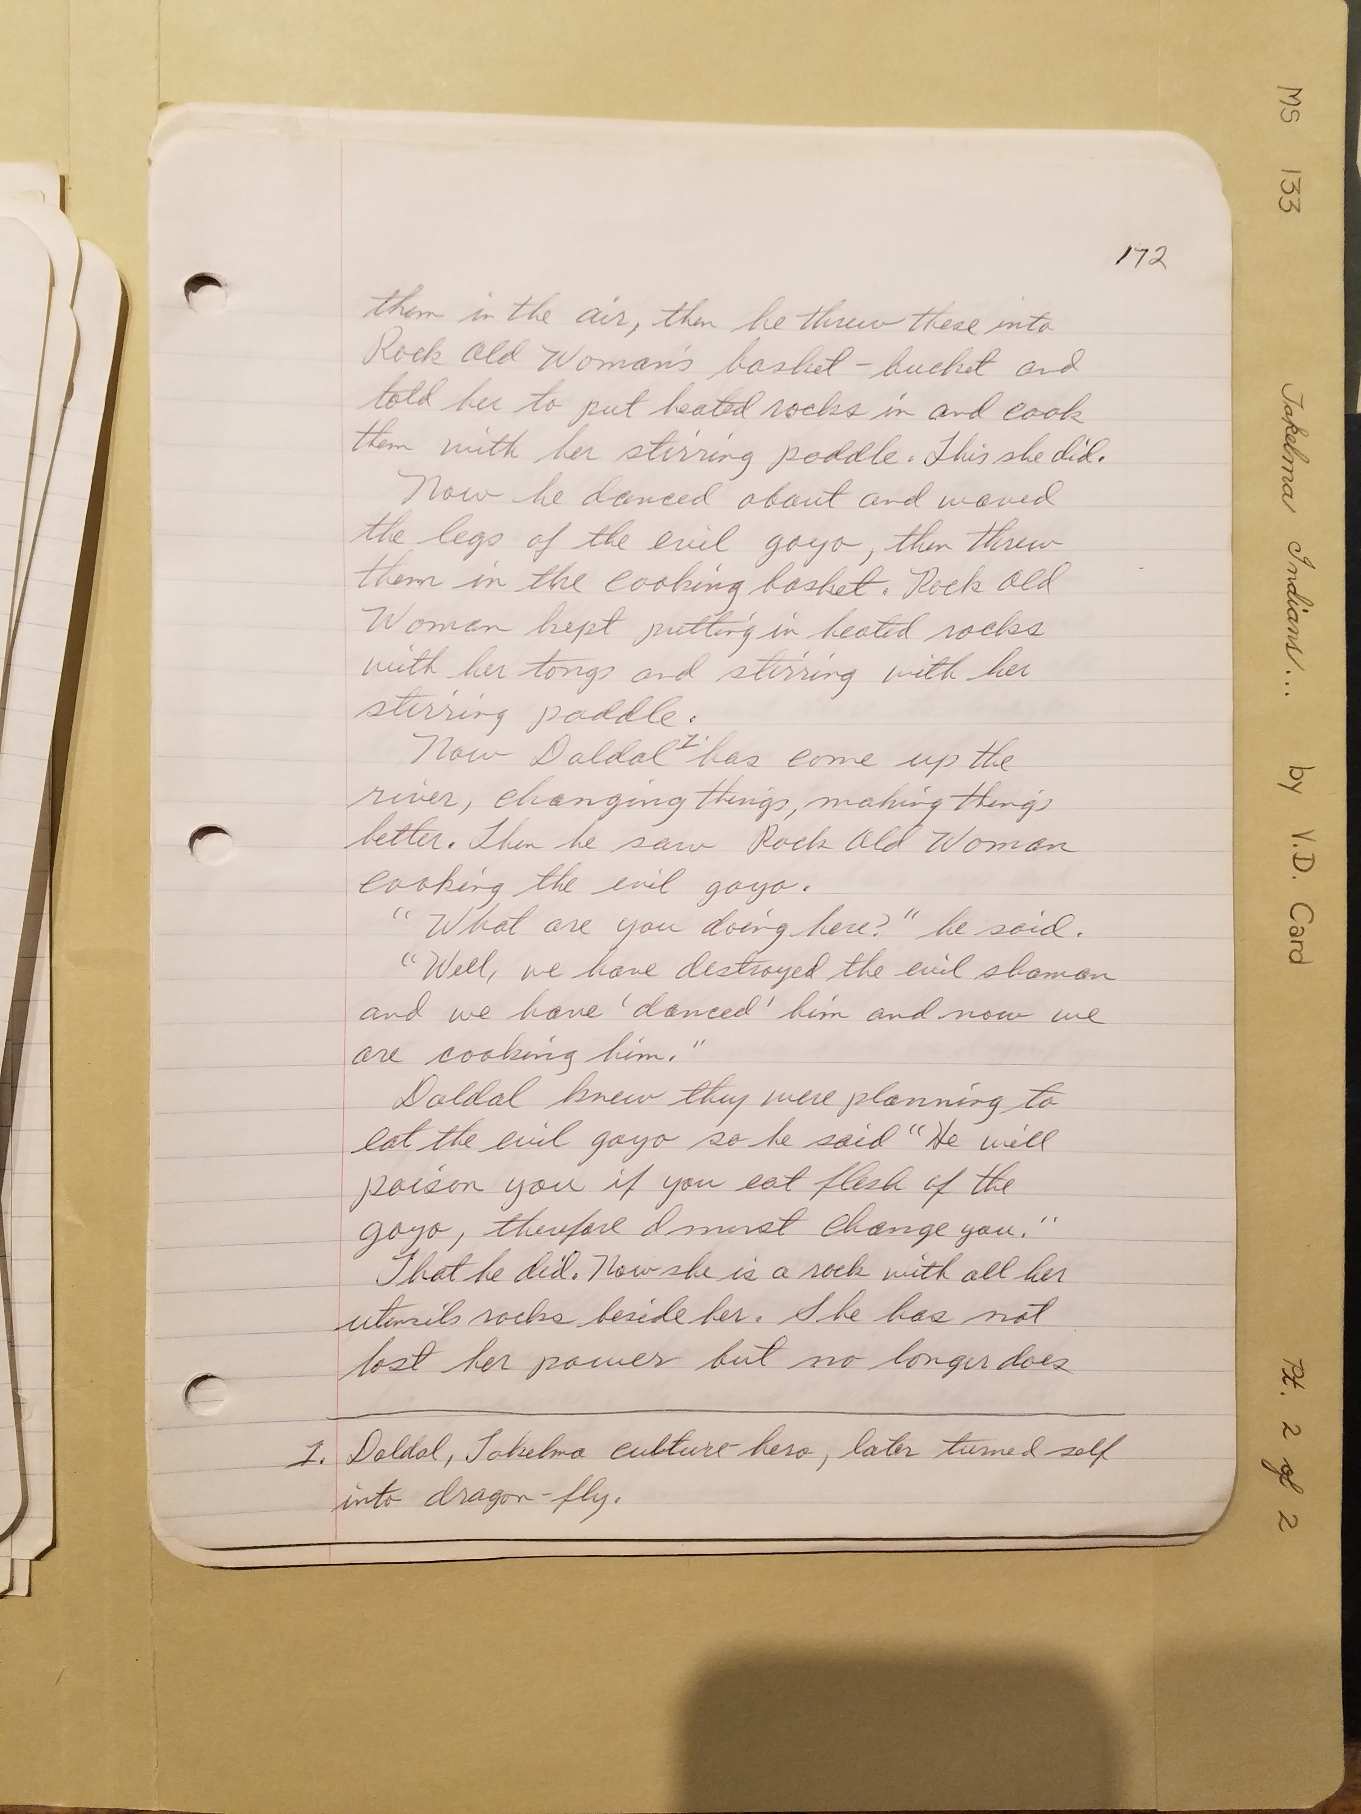 172
them in the air, then he threw these into
Rock Old Woman's basket-bucket and
told her to put heated rocks in and cook
them with her stirring paddle. This she did.
Now he danced about and waved
the legs of the evil goyo, then threw
them in the cooking basket. Rock Old
Woman kept putting in heated rocks
with her tongs and stirring with her
stirring paddle.
Now Daldal 1. has come up the
river, changing things, making things
better. Then he saw Rock Old Woman
cooking the evil goyo.
"What are you doing here?" he said.
"Well, we have destroyed the evil shaman
and we have 'danced' him and now we
are cooking him."
Daldal knew they were planning to
eat the evil goyo so he said "He will
poison you if you eat flesh of the
goyo, therefore I must change you."
That he did. Now she is a rock with all her
utensils rocks beside her. She has not
lost her power but no longer does
1. Daldal, Takelma culture hero, later turned self
into dragon-fly.
MS 133 Takelma Indians... by V.D. Card Pt. 2 of 2